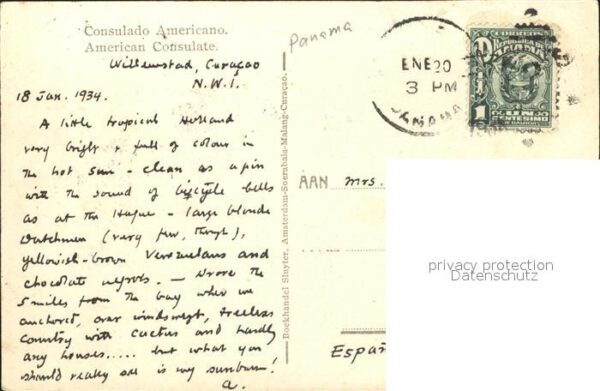 Consulado Americano.
American Consulate.
Willemstad, Curaçao
N.W.I.
18 Jan. 1934.
A little tropical Holland
very bright & full of colour in
the hot sun - clean as a pin
with the sound of bicycle bells
as at the Hague - large blonde
Dutchmen (very few, though),
yellowish-brown Venezuelans and
chocolate negroes. — Drove the
5 miles from the bay where we
anchored, over windswept, treeless
country with cactus and hardly
any houses..... but what you
should really see is my sunburn!
a.
Boekhandel Sluyter, Amsterdam-Soerabaia-Malang-Curaçao.
Panama
ENE 20
3 PM
PANAMA
CORREOS
REPUBLICA
PANAMA
1
UN
CENTESIMO
DE BALBOA
AAN Mrs.
privacy protection
Datenschutz
Españ